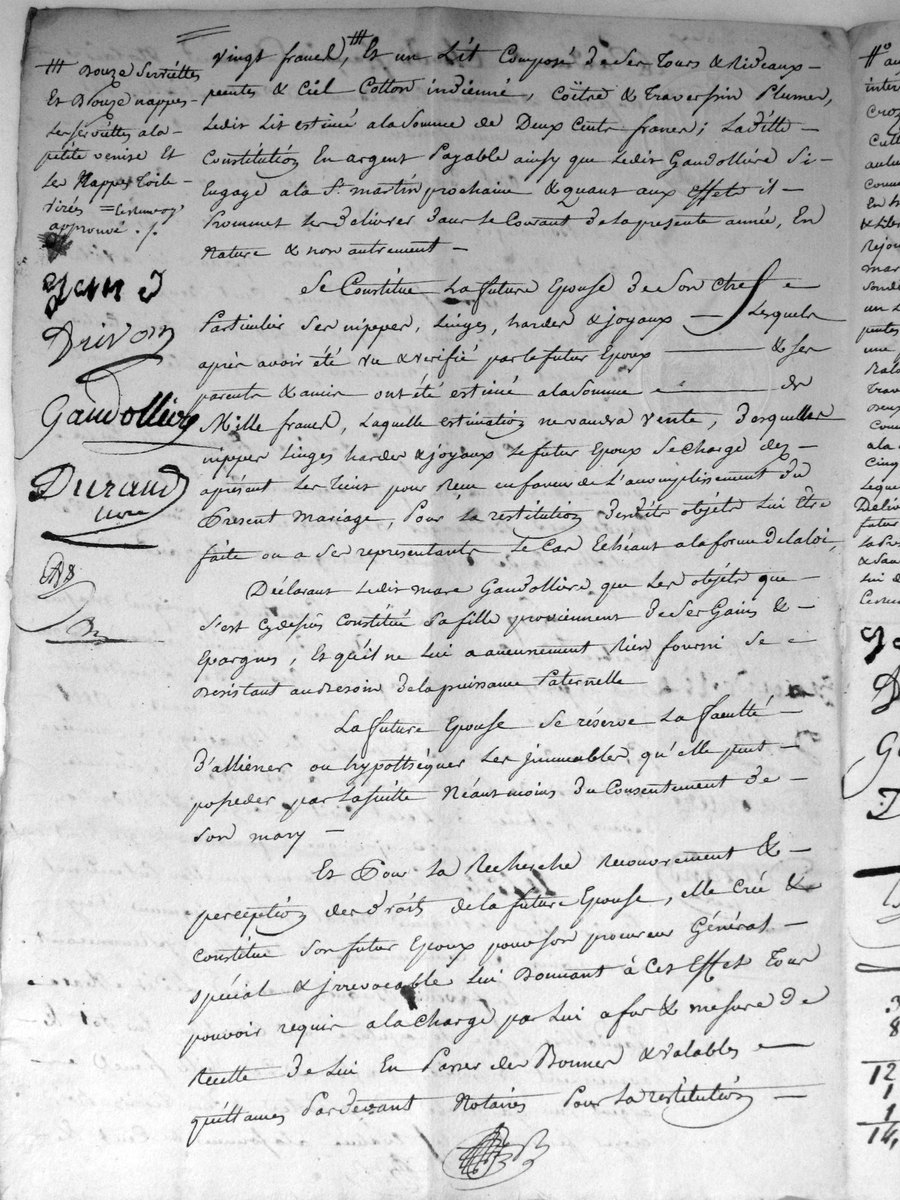 ttt Douze Serviettes
Et Douze nappes
Les serviettes a la
petite venise Et
les Nappes Toile
approuvé ./.
Jean
Drivon
Gaudollière
Durand
vingt francs, ttt Et un Lit Composé de Ses Tours & Rideaux
pentes & Ciel Cotton indienné, Coïtre & Traversin Plumes,
Ledit Lit estimé a la Somme de Deux Cents francs; Laditte
Constitution En argent Payable ainsy que ledit Gaudollière S'i
Engage a la St. martin prochaine & quant aux effets il
Promet les délivrer dans le Courant de la presente année, En
Nature & non autrement
Se Constitue La future Epouse de Son Chef
Particulier Ses nippes, Linges, hardes & joyaux Lesquels
après avoir été vu & verifié par le futur Epoux & ses
parents & amis ont été estimé a la Somme de
Mille francs, Laquelle estimation ne vaudra vente, desquelles
nippes Linges hardes & joyaux Le futur Epoux Se Charge des
aprésent Les tient pour reçu en faveur de L'accomplissement du
Present mariage, Pour La restitution desdits objets Lui Etre
faite ou a Ses representants Le Cas Echéant a la forme de la loi,
Déclarant Ledit marc Gaudollière que Les objets que
S'est Cydessus Constitué Sa fille proviennent de Ses Gains &
Epargnes, Et qu'il ne Lui a aucunement Rien fourni Se
desistant au besoin de la puissance Paternelle
La future Epouse Se réserve La faculté
D'alliéner ou hypothéquer Les jmmeubles qu'elle peut
posseder par La suitte Néantmoins du Consentement de
Son mary
Et Pour La Recherche Recouvrement &
perception des droits de la future Epouse, elle Crée &
Constitue Son futur Epoux pour son procureur Général
Spécial & jrrevocable Lui Donnant à Cet Effet Tour
pouvoir requis a la Charge par Lui a fur & mesure de
Recette de Lui En Passer des Bonnes & valables
quittances Pardevant Notaires Pour La restitution